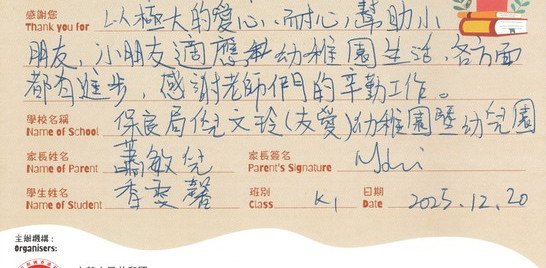 感謝您 以極大的愛心、耐心,幫助小
Thank you for
朋友,小朋友適應幼稚園生活,各方面
都有進步,感謝老師們的辛勤工作。
學校名稱 保良局倪文玲(友愛)幼稚園暨幼兒園
Name of School
家長姓名 蕭敏兒 家長簽名
Name of Parent Parent's Signature
學生姓名 班別 K1 日期 2025.12.20
Name of Student Class Date
主辦機構:
Organisers: